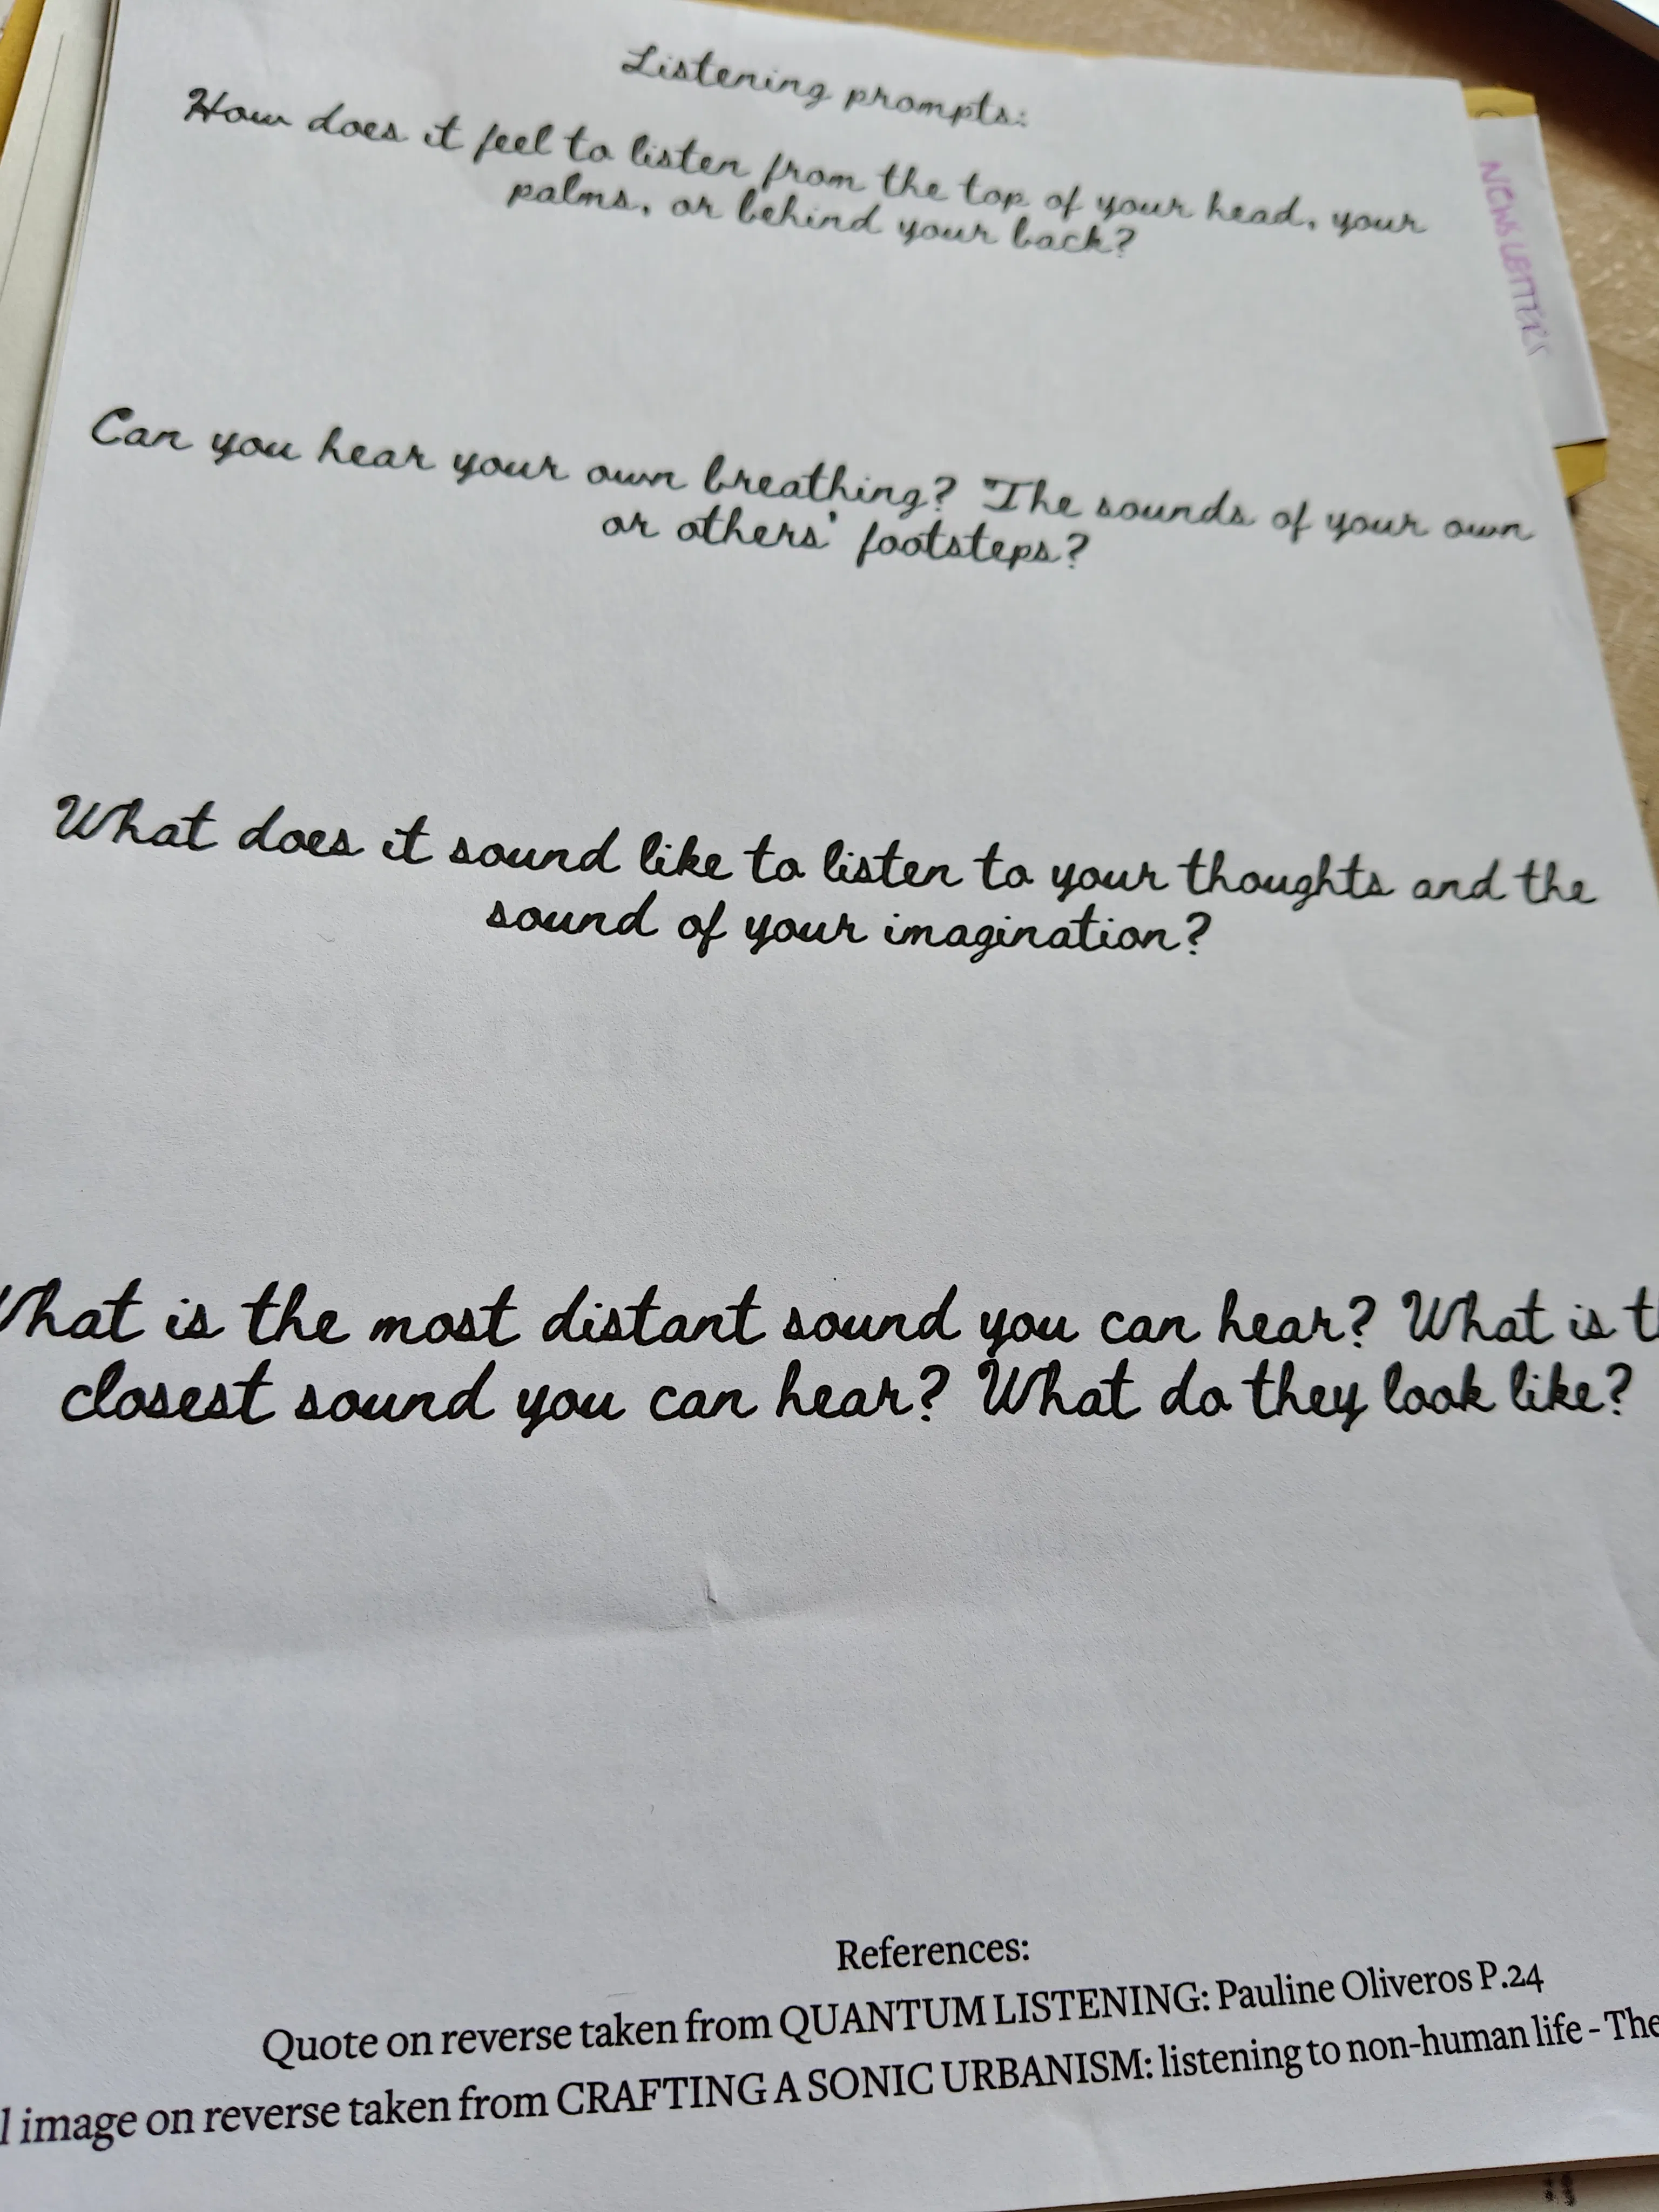 Listening prompts:
How does it feel to listen from the top of your head, your
palms, or behind your back?
Can you hear your own breathing? The sounds of your own
or others' footsteps?
What does it sound like to listen to your thoughts and the
sound of your imagination?
What is the most distant sound you can hear? What is
closest sound you can hear? What do they look like?
References:
Quote on reverse taken from QUANTUM LISTENING: Pauline Oliveros P.24
image on reverse taken from CRAFTING A SONIC URBANISM: listening to non-human life - The
NEWSLETTERS